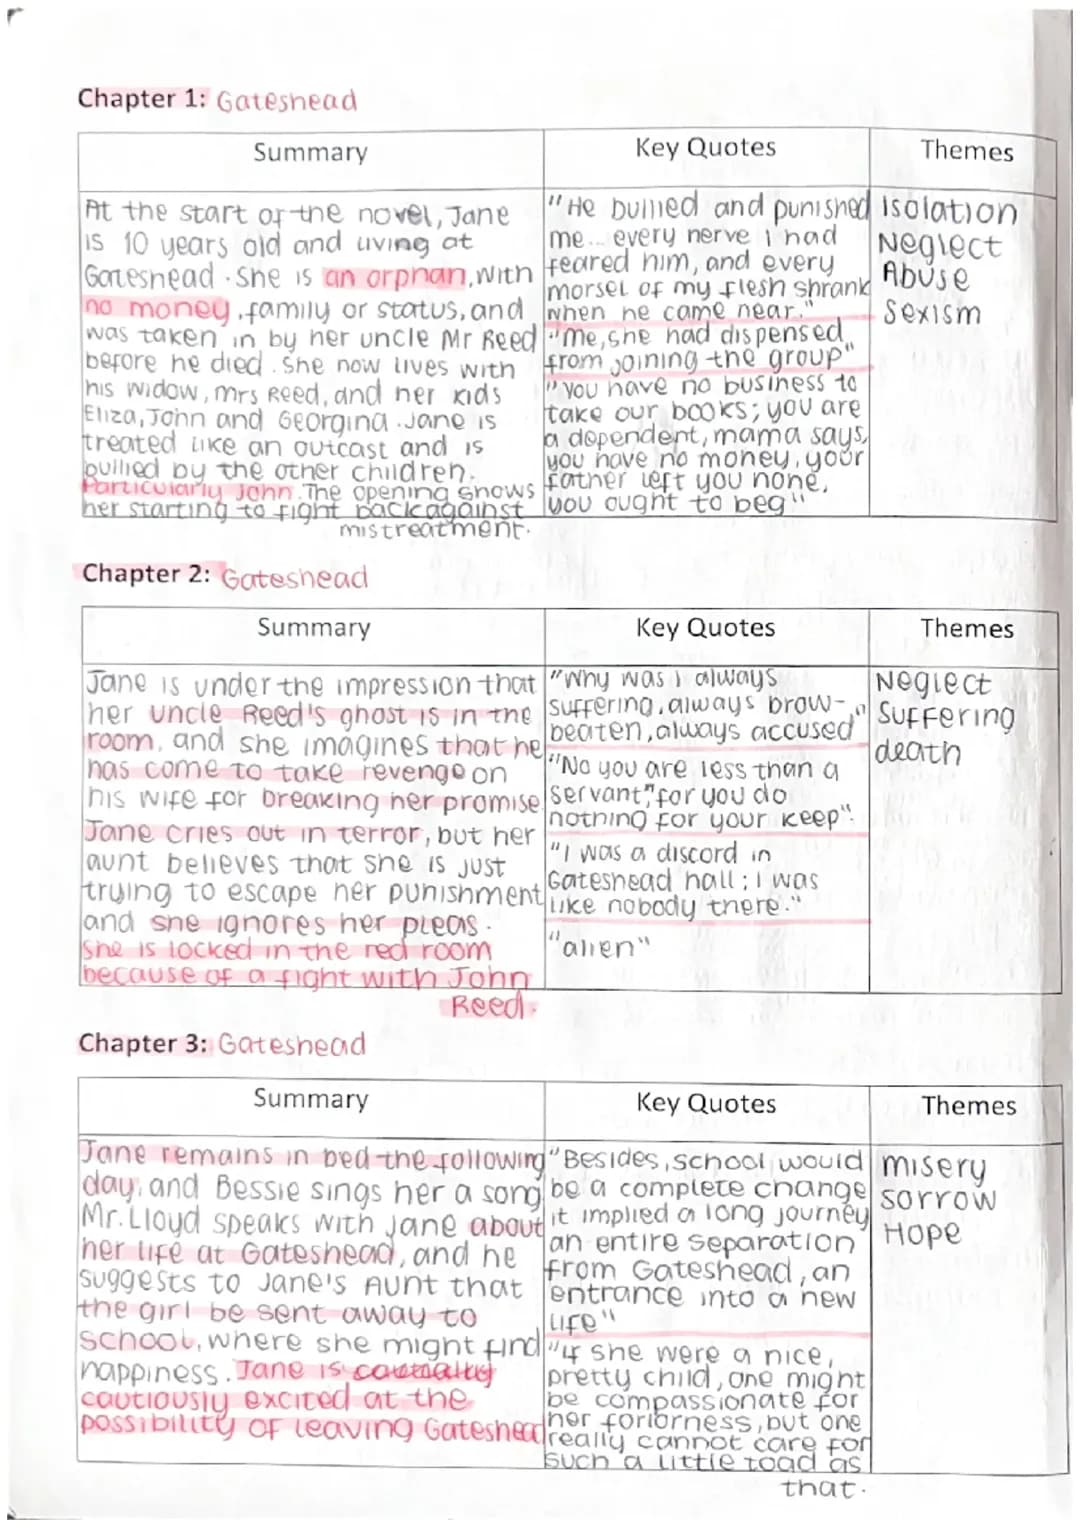 Chapter 1: Gateshead
Summary
Key Quotes
Themes
At the start of the novel, Jane
is 10 years old and living at
Gateshead. She is an orphan, with
no money, family or status, and
was taken in by her uncle Mr Reed
before he died. She now lives with
his widow, mrs Reed, and her kids
Eliza, John and Georgina. Jane is
treated like an outcast and is
bullied by the other children.
Particularly John. The opening shows
her starting to fight back against
mistreatment.
"He bullied and punished
me... every nerve I had
feared him, and every
morsel of my flesh shrank
when he came near."
"Me, she had dispensed
from joining the group"
"you have no business to
take our books; you are
a dependent, mama says,
you have no money, your
father left you none,
you ought to beg"
Isolation
Neglect
Abuse
Sexism
Chapter 2: Gateshead
Summary
Key Quotes
Themes
Jane is under the impression that
her uncle Reed's ghost is in the
room, and she imagines that he
has come to take revenge on
his wife for breaking her promise
Jane cries out in terror, but her
aunt believes that she is just
trying to escape her punishment
and she ignores her pleas.
She is locked in the red room
because of a fight with John
Reed.
"Why was I always
suffering, always brow-
beaten, always accused"
"No you are less than a
servant," for you do
nothing for your keep".
"I was a discord in
Gateshead hall; I was
like nobody there."
"alien"
Neglect
Suffering
death
Chapter 3: Gateshead
Summary
Key Quotes
Themes
Jane remains in bed the following
day, and Bessie sings her a song
Mr. Lloyd speaks with Jane about
her life at Gateshead, and he
suggests to Jane's Aunt that
the girl be sent away to
school, where she might find
happiness. Jane is
cautiously excited at the
possibility of leaving Gateshead
"Besides, school would
be a complete change
it implied a long journey
an entire separation
from Gateshead, an
entrance into a new
life"
"if she were a nice,
pretty child, one might
be compassionate for
her forlorness, but one
really cannot care for
such a little toad as
that.
misery
sorrow
Hope